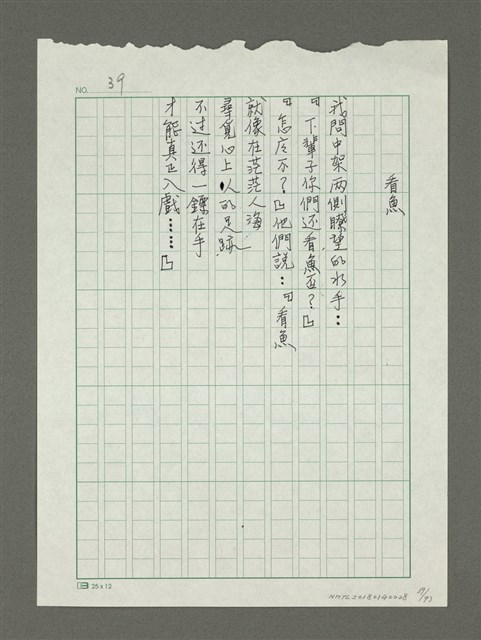 NO. 39
看魚
我問中架两側瞭望的水手：
『下輩子你們还看魚否？』
『怎庅不？』他們説：『看魚
就像在茫茫人海
尋覓心上人的足跡
不过还得一鏢在手
才能真正入戲……』
25x12
NMTL20180140028